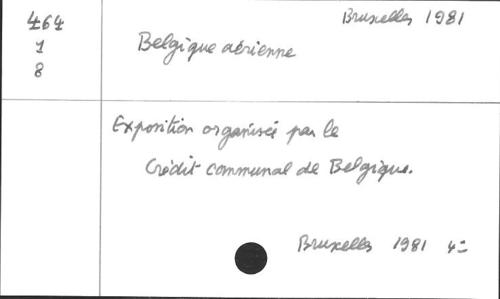 464
1
8
Bruxelles 1981
Belgique aérienne
Exposition organisée par le
Crédit communal de Belgique.
Bruxelles 1981 4°